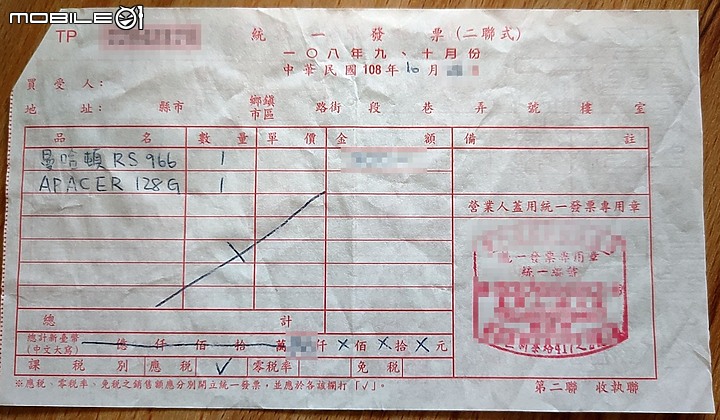 MOBILE01
TP
統一發票(二聯式)
一〇八年九、十月份
中華民國108年10月
買受人:
地址: 縣市 鄉鎮市區 路街 段 巷 弄 號 樓 室
品名 數量 單價 金額 備註
曼哈頓 RS 966 1
APACER 128G 1
營業人蓋用統一發票專用章
統一發票專用章
統一編號
總計
總計新臺幣(中文大寫) 億 仟 佰 拾 萬 仟 X 佰 X 拾 X 元
課稅別 應稅 ✓ 零稅率 免稅
※應稅、零稅率、免稅之銷售額應分別開立統一發票,並應於各該欄打「✓」。
第二聯 收執聯